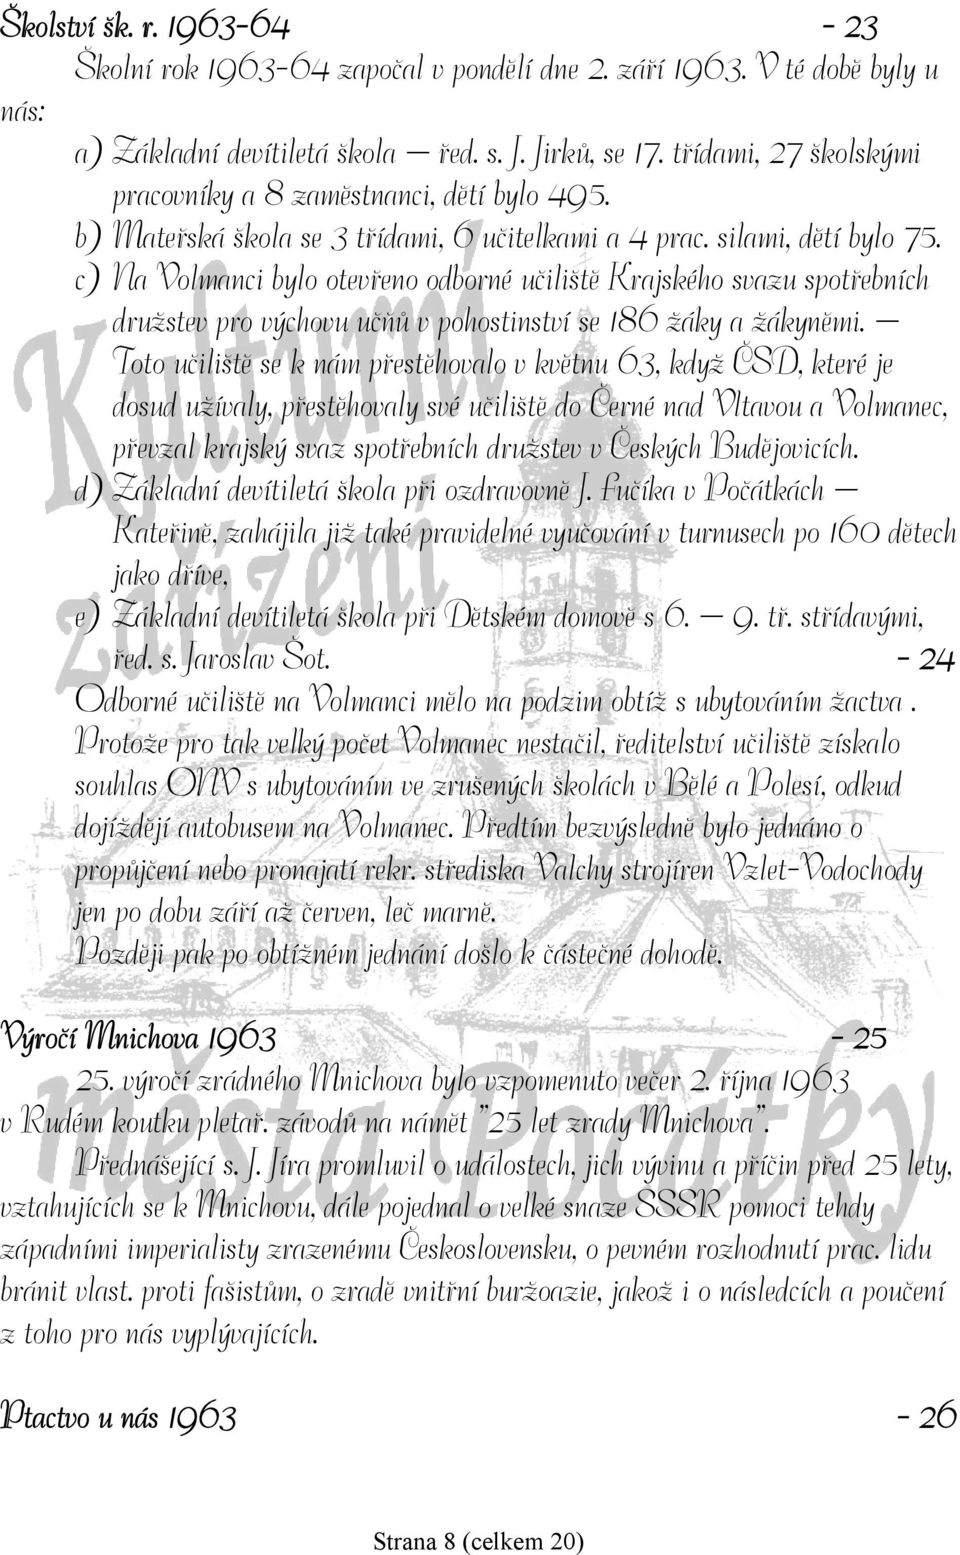 Školství šk. r. 1963-64 - 23
Školní rok 1963-64 započal v pondělí dne 2. září 1963. V té době byly u
nás:
a) Základní devítiletá škola – řed. s. J. Jirků, se 17. třídami, 27 školskými
pracovníky a 8 zaměstnanci, dětí bylo 495.
b) Mateřská škola se 3 třídami, 6 učitelkami a 4 prac. silami, dětí bylo 75.
c) Na Volmanci bylo otevřeno odborné učiliště Krajského svazu spotřebních
družstev pro výchovu učňů v pohostinství se 186 žáky a žákyněmi. –
Toto učiliště se k nám přestěhovalo v květnu 63, když ČSD, které je
dosud užívaly, přestěhovaly své učiliště do Černé nad Vltavou a Volmanec,
převzal krajský svaz spotřebních družstev v Českých Budějovicích.
d) Základní devítiletá škola při ozdravovně J. Fučíka v Počátkách –
Kateřině, zahájila již také pravidelné vyučování v turnusech po 160 dětech
jako dříve,
e) Základní devítiletá škola při Dětském domově s 6. – 9. tř. střídavými,
řed. s. Jaroslav Šot. - 24
Odborné učiliště na Volmanci mělo na podzim obtíž s ubytováním žactva .
Protože pro tak velký počet Volmanec nestačil, ředitelství učiliště získalo
souhlas ONV s ubytováním ve zrušených školách v Bělé a Polesí, odkud
dojíždějí autobusem na Volmanec. Předtím bezvýsledně bylo jednáno o
propůjčení nebo pronajatí rekr. střediska Valchy strojíren Vzlet-Vodochody
jen po dobu září až červen, leč marně.
Později pak po obtížném jednání došlo k částečné dohodě.
Výročí Mnichova 1963 - 25
25. výročí zrádného Mnichova bylo vzpomenuto večer 2. října 1963
v Rudém koutku pletař. závodů na námět "25 let zrady Mnichova".
Přednášející s. J. Jíra promluvil o událostech, jich vývinu a příčin před 25 lety,
vztahujících se k Mnichovu, dále pojednal o velké snaze SSSR pomoci tehdy
západními imperialisty zrazenému Československu, o pevném rozhodnutí prac. lidu
bránit vlast. proti fašistům, o zradě vnitřní buržoazie, jakož i o následcích a poučení
z toho pro nás vyplývajících.
Ptactvo u nás 1963 - 26
Strana 8 (celkem 20)
Kulturní
zařízení
města Počátky